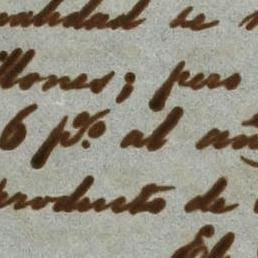 ualidad se
llones; pero
6 p% al añ
producto de
El